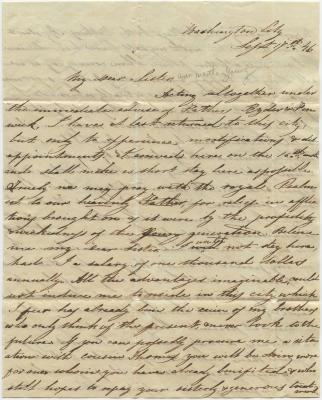 Washington City
Sept 17th 46
My dear Sister
Acting altogether under
the immediate advice of Father Ryder & Fen
wick, I have at last returned to this city,
but only to experience mortification & dis
appointment. I arrived here on the 15th
and shall make as short stay here as possible
Surely we may pray with the royal Psalm
ist to our heavenly Father, for relief in afflic
tions brought on us even by the prodigality
of the generation. Believe
me my dear Sister I would not stay here
had I a salary of one thousand dollars
annually. All the advantages imaginable, could
not induce me to reside in this city which
I fear has already been the ruin of my brothers
who only think of the present & never look to the
future. If you can possibly procure me a situ
ation with cousin Thomas you will be doing
for one whom you have already benefitted & who
still hopes to repay your sisterly & generous